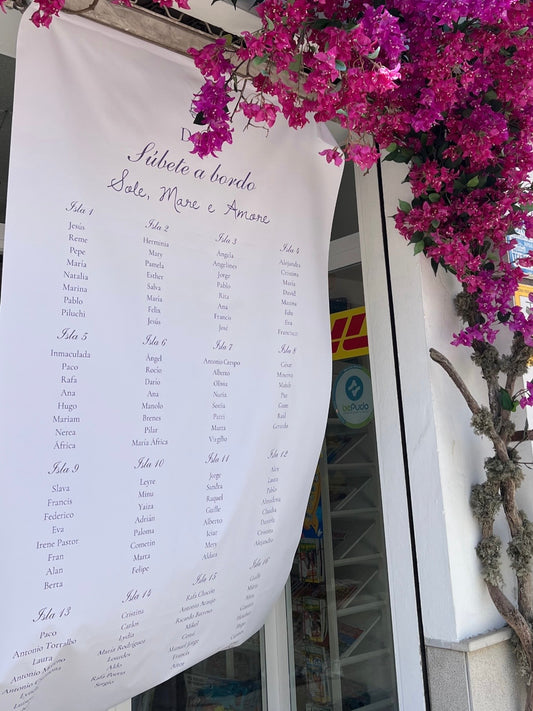 Súbete a bordo
Sole, Mare e Amore
Isla 1
Jesús
Reme
Pepe
María
Natalia
Marina
Pablo
Piluchi
Isla 2
Herminia
Mary
Pamela
Esther
Salva
María
Felix
Jesús
Isla 3
Angela
Angelines
Jorge
Pablo
Rita
Ana
Francis
José
Isla 4
Alejandra
Cristina
María
David
Maxima
Edu
Eva
Francisco
Isla 5
Inmaculada
Paco
Rafa
Ana
Hugo
Mariam
Nerea
África
Isla 6
Ángel
Rocio
Dario
Ana
Manolo
Brenes
Pilar
María África
Isla 7
Antonio Crespo
Alberto
Olivia
Nuria
Sonia
Patri
Marta
Virgilio
Isla 8
César
Minerva
Paz
Raúl
Gerardo
Isla 9
Slava
Francis
Federico
Eva
Irene Pastor
Fran
Alan
Berta
Isla 10
Leyre
Minu
Yaiza
Adrián
Paloma
Cometin
Marta
Felipe
Isla 11
Jorge
Sandra
Raquel
Guille
Alberto
Iciar
Mery
Aldara
Isla 12
Alex
Laura
Pablo
Almudena
Claudia
Daniela
Cristina
Alejandro
Isla 13
Paco
Antonio Torralbo
Laura
Antonio
Isla 14
Cristina
Carlos
Lydia
María Rodríguez
Lourdes
Aldo
Rafa Puertas
Sergio
Isla 15
Rafa Chacón
Antonio Araujo
Ricardo Barroso
Mikel
Cesar
Manuel Jorge
Francis
Isla 16
Guille
DHL
bePudo